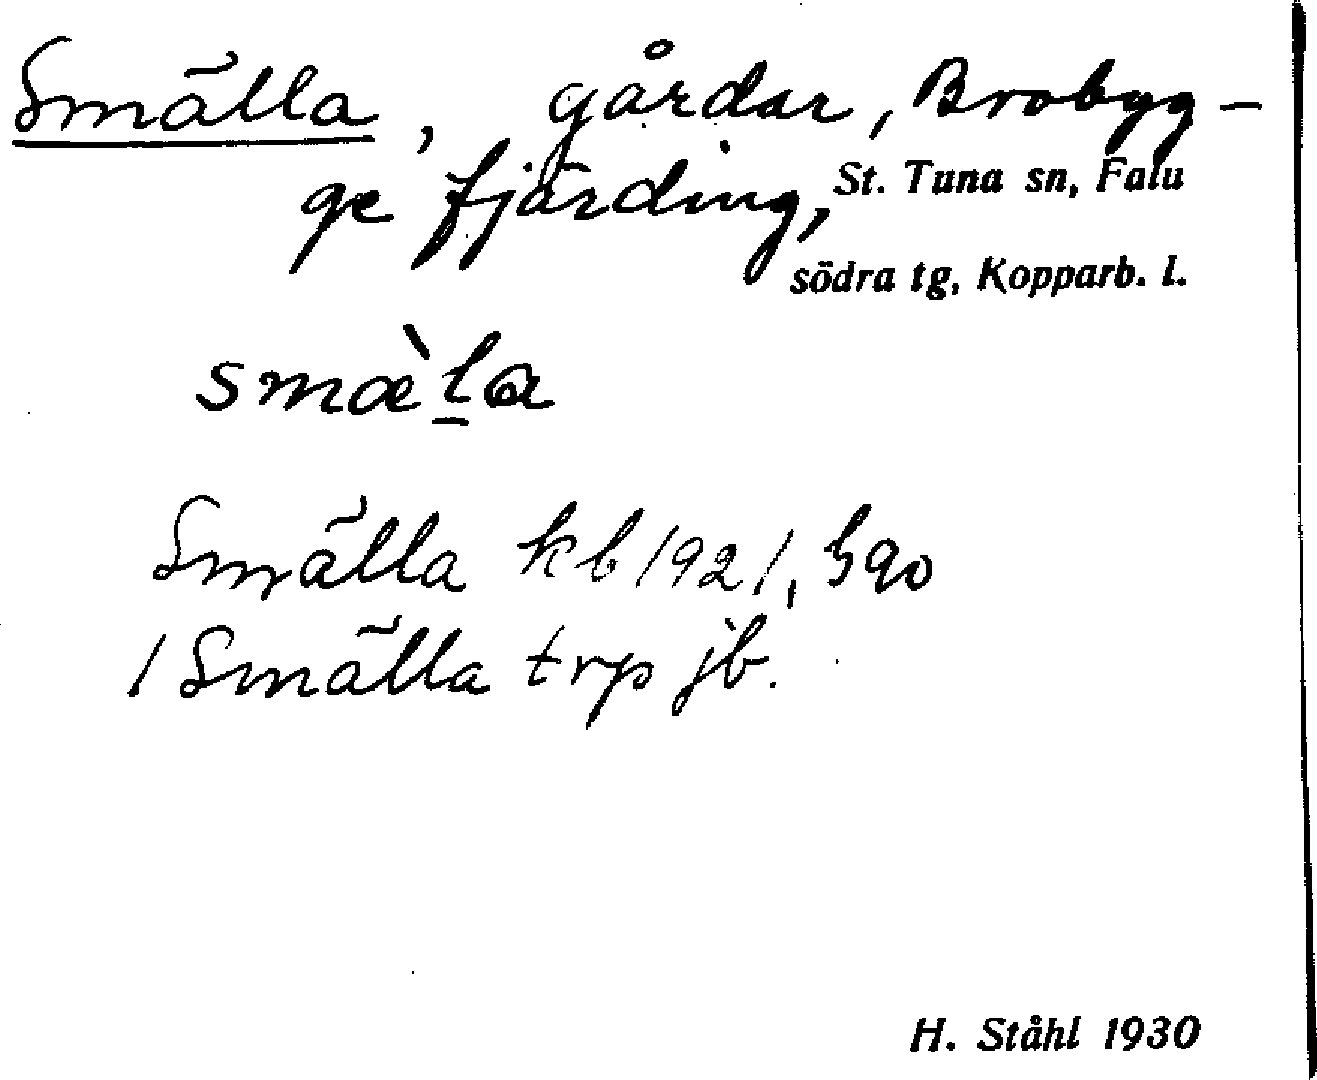 Smälla, gårdar, Brobygg-
ge fjärding, St. Tuna sn, Falu
södra tg, Kopparb. l.
smæ̀l̠a
Smälla kb 1921, 590
1 Smälla trp jb.
H. Ståhl 1930